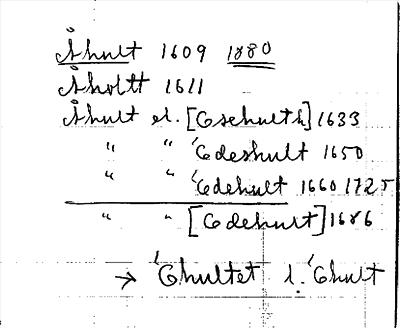 Åhult 1609 1880
Åholtt 1611
Åhult el. [Eehulth] 1633
" " 'Edeshult 1650
" " 'Edehult 1660 1725
" " [Edehurt] 1686
→ 'Ehultet l. 'Ehult